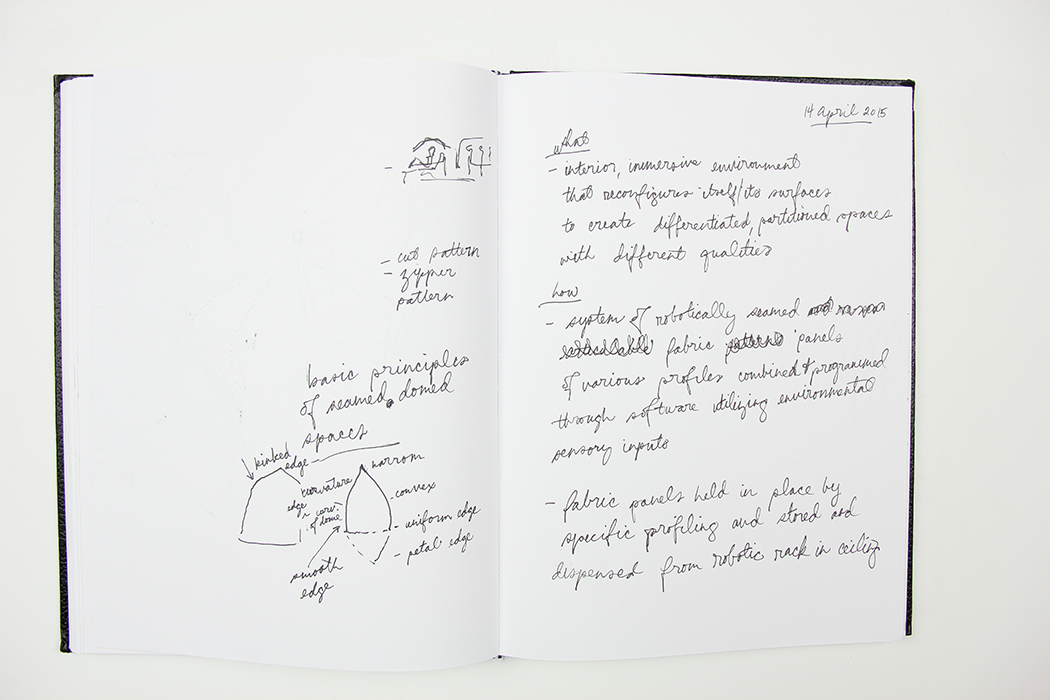 - cut pattern
- zipper
pattern
basic principles
of seamed domed
spaces
kinked
edge
narrow
curvature
edge ~ curv.
of dome
- convex
- uniform edge
- petal edge
smooth
edge
14 April 2015
what
- interior, immersive environment
that reconfigures itself/its surfaces
to create differentiated, partitioned spaces
with different qualities
how
- system of robotically seamed
fabric panels
of various profiles combined & programmed
through software utilizing environmental
sensory inputs
- fabric panels held in place by
specific profiling and stored and
dispensed from robotic rack in ceiling